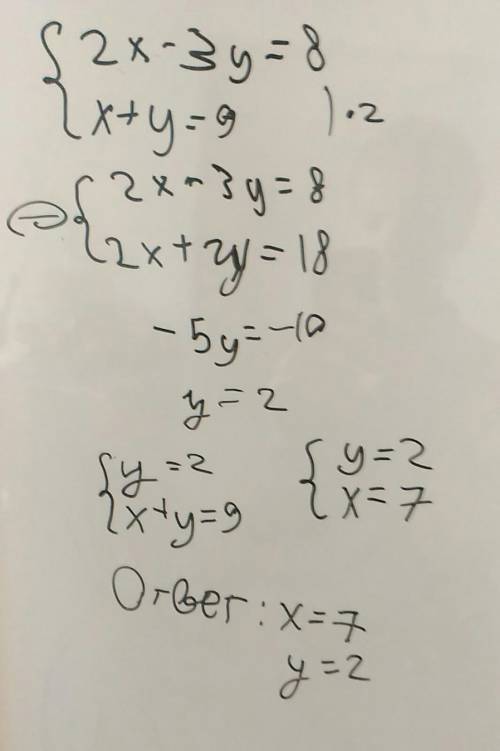 2x-3y=8
x+y=9 )·2
⇔ 2x-3y=8
2x+2y=18
-5y=-10
y=2
y=2
x+y=9
y=2
x=7
Ответ: x=7
y=2